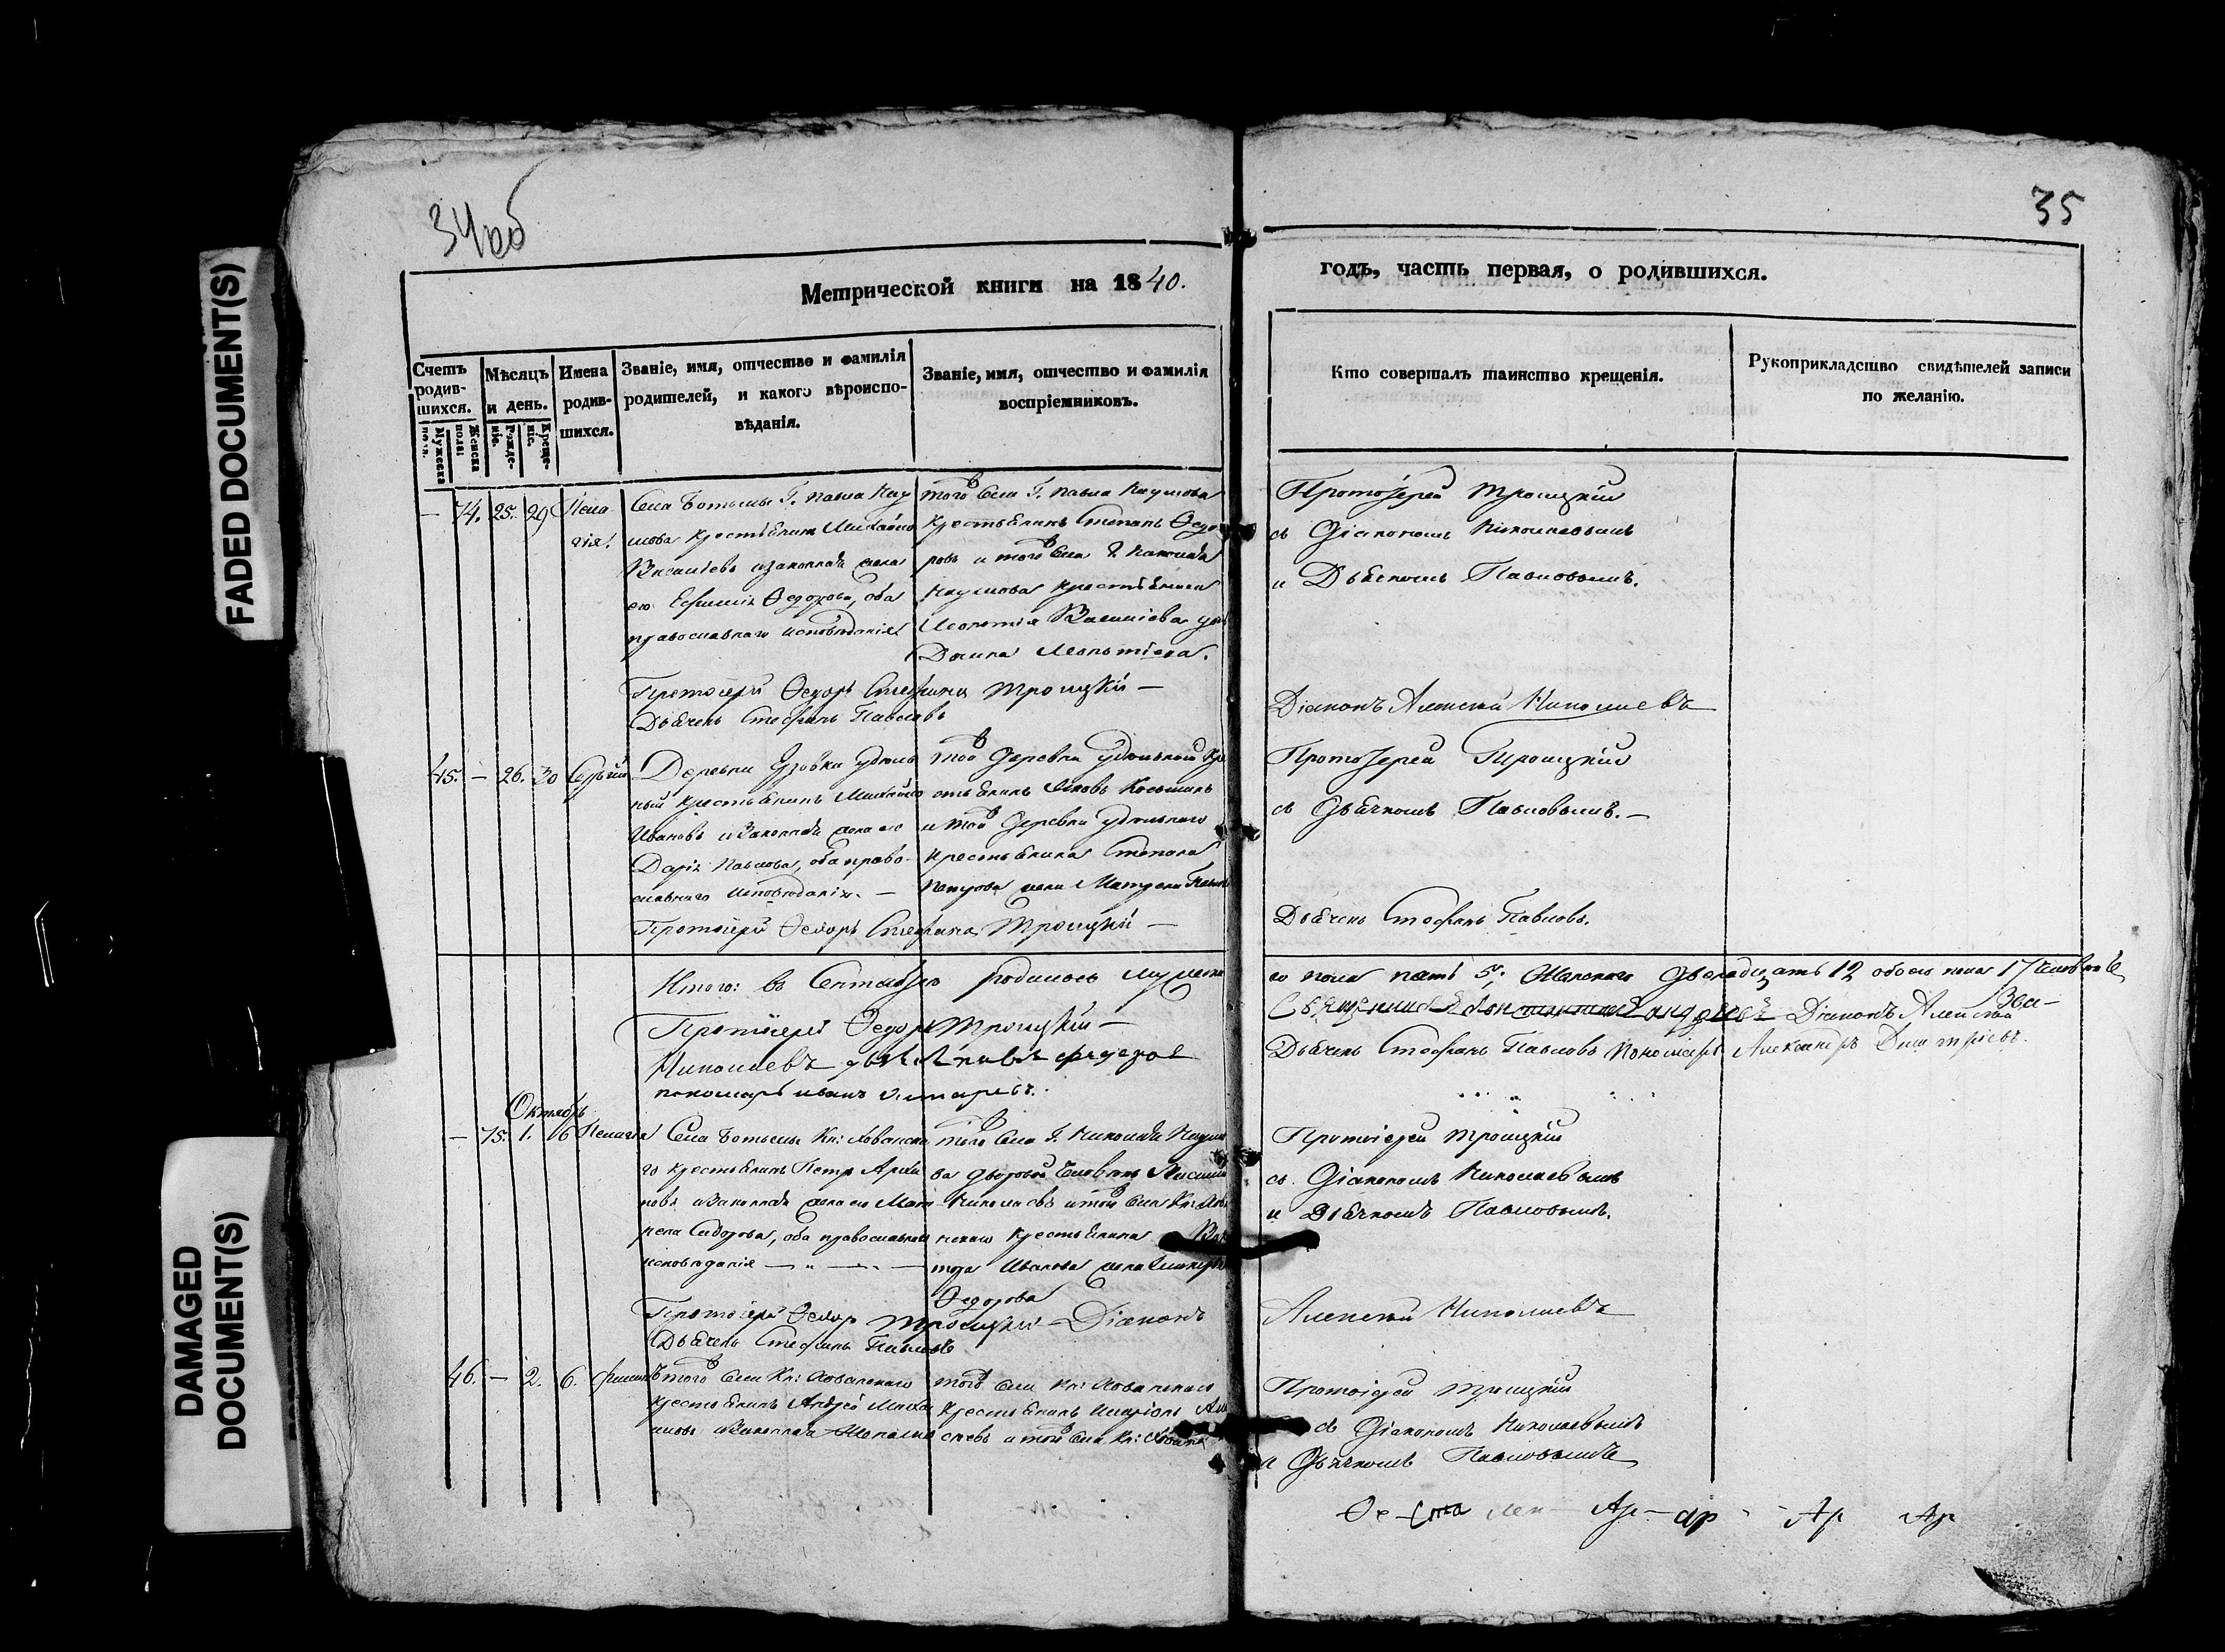 34 об
35
Метрической книги на 1840.
годъ, часть первая, о родившихся.
Счетъ родив-шихся.
Мужеска пола.
Женска пола:
Мѣсяцъ и день.
Рожде-ніе.
Креще-ніе.
Имена родив-шихся.
Званіе, имя, отчество и фамилія
родителей, и какого вѣроиспо-
вѣданія.
Званіе, имя, отчество и фамилія
воспріемниковъ.
Кто совершалъ таинство крещенія.
Рукоприкладство свидѣтелей записи
по желанію.
— 74. 25. 29 Пела-
гія.
Села Ботьмы Г. Павла Нау
мова крестьянинъ Михайло
Василіевъ и законная жена
его Евфимія Ѳедорова, оба
православнаго исповѣданія
того села Г. Павла Наумова
крестьянинъ Степанъ Ѳедо
ровъ и того села Г. Николая
Наумова крестьянина
Василіева
Протоіерей Троицкій
съ Діакономъ Николаевымъ
и Дьячкомъ Павловымъ.
Протоіерей Ѳедоръ Стефановъ Троицкій —
Дьячекъ Стефанъ Павловъ
Діаконъ Алексей Николаевъ
45. — 26. 30 Сергій
Деревни Узовки удѣль
ный крестьянинъ Михайло
Ивановъ и законная жена его
Дарія Павлова, оба право-
славнаго исповѣданія. —
той деревни удѣльной кре
стьянинъ Яковъ
и той деревни удѣльнаго
крестьянина Степана
Петрова жена Матрена
Протоіерей Троицкій
съ Дьячкомъ Павловымъ. —
Протоіерей Ѳедоръ Стефановъ Троицкій —
Дьячекъ Стефанъ Павловъ.
Итого: въ Сентябрѣ родилось мужеска
го пола пять 5, Женскаго двенадцать 12 обоего пола 17 человѣкъ
Протоіерей Ѳедоръ Троицкій —
Діаконъ Алексей
Николаевъ
Дьячекъ Стефанъ Павловъ Пономарь Александръ Димитріевъ.
пономарь иванъ
Октябрь
— 75. 1. 6 Пелагія
Села Ботьмы Кн: Хованска
го крестьянинъ Петръ Архи
повъ и законная жена его Мат
рена Сидорова, оба православнаго
исповѣданія
того села Г. Николая Наумо
ва дворовой человѣкъ
Николаевъ и того села Кн: Хова
нскаго крестьянина
Иванова жена
Ѳедорова
Протоіерей Троицкій
съ Діакономъ Николаевымъ
и Дьячкомъ Павловымъ.
Протоіерей Ѳедоръ Троицкій — Діаконъ
Алексей Николаевъ
Дьячекъ Стефанъ Павловъ
46. — 2. 6.
того села Кн: Хованскаго
крестьянинъ Андрей Михай
ловъ и законная
того села Кн: Хованскаго
крестьянинъ Иларіонъ
сѣевъ и того села Кн: Хованск
Протоіерей Троицкій
съ Діакономъ Николаевымъ
и Дьячкомъ Павловымъ
FADED DOCUMENT(S)
DAMAGED
DOCUMENT(S)